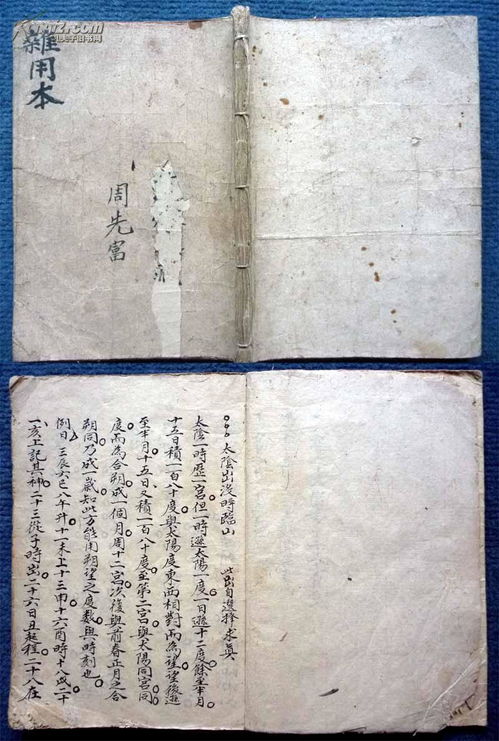 雜用本
周先富
太陰出沒時臨山 此出自選擇求真
太陰一時歷一宮但一時遜太陽一度一日遜十二度餘至半月
十五日積一百八十度與太陽度東西相對而為望望後遜
至半月十五日又積一百八十度至第二宮與太陽同宮同
度而為合朔成一個月周十二宮次復與前春正月之合
朔同乃成一歲知此方能用朔望之度數與時刻也
例曰 三辰五巳八年升十一未上十三申十六酉時十八戌二十
一亥上記其神二十三從子時出二十六日丑起程二十八在